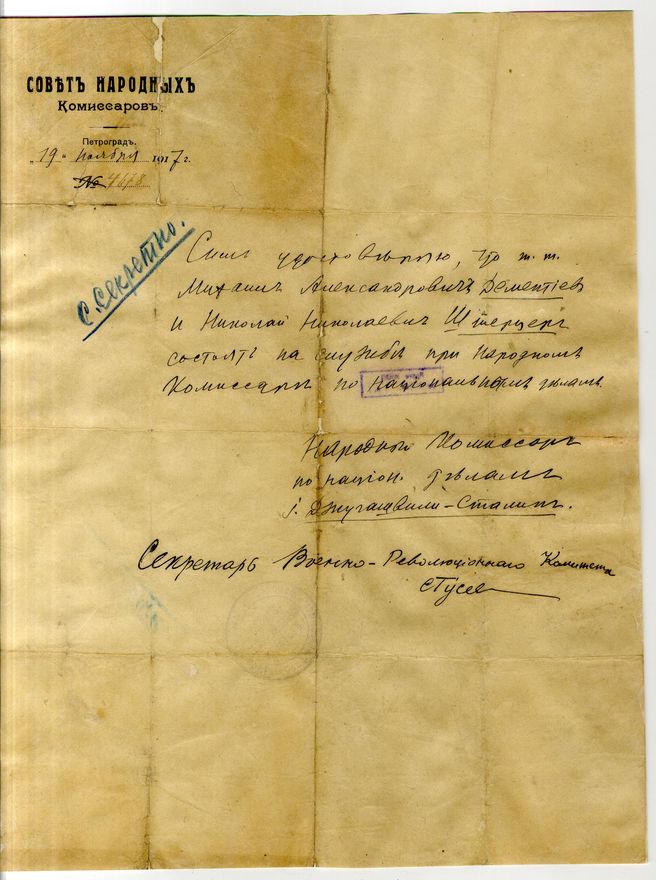 СОВѢТЪ НАРОДНЫХЪ
Комиссаровъ.
Петроградъ.
"19" ноября 1917 г.
№ 4678
С. Секретно.
Симъ удостовѣряю, что т. т.
Михаилъ Александровичъ Дементіевъ
и Николай Николаевичъ
состоятъ на службѣ при Народномъ
Комиссарѣ по національнымъ дѣламъ.
Народный Комиссаръ
по націон. дѣламъ
І. Джугашвили-Сталинъ.
Секретарь Военно-Революціоннаго Комитета